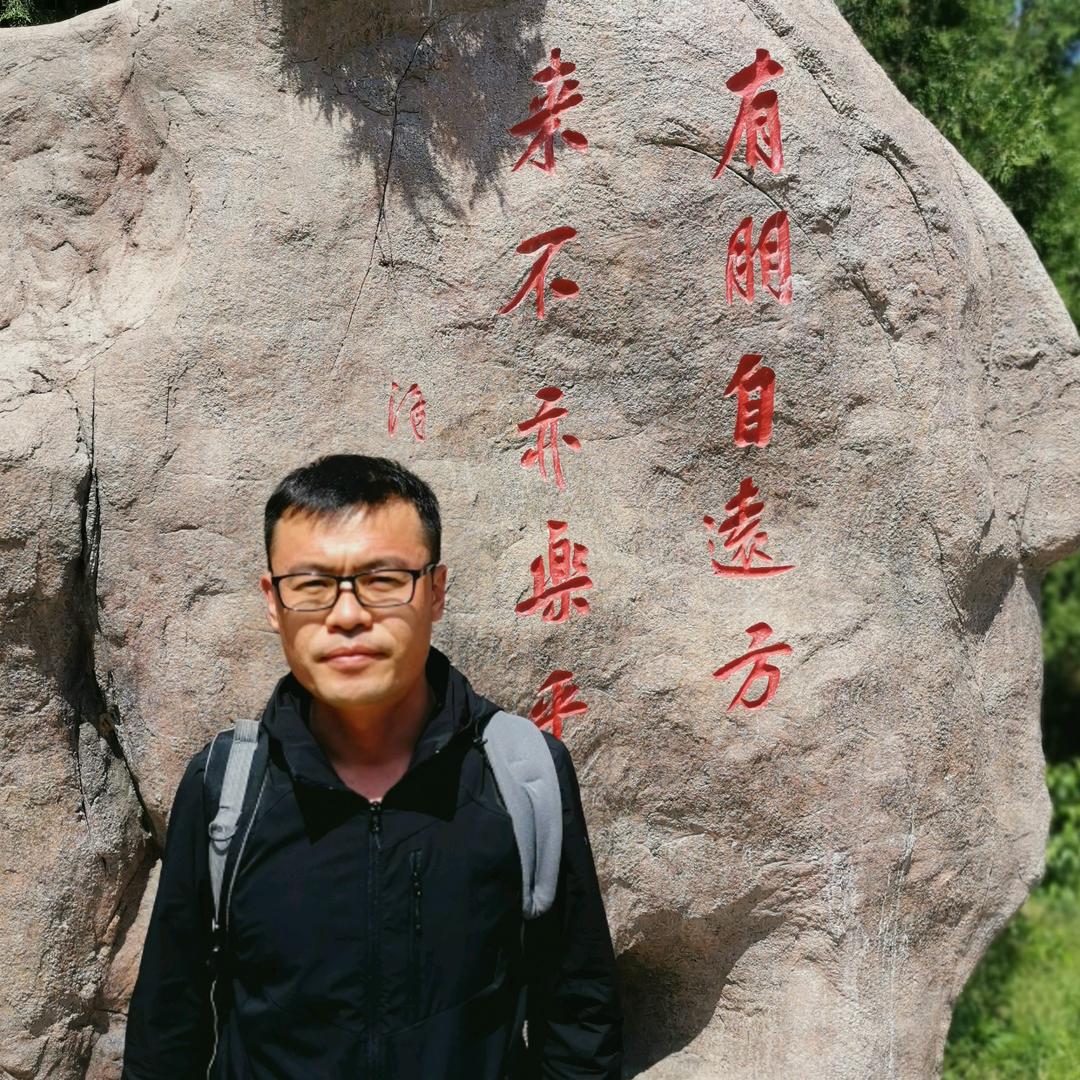 有朋自遠方
来不亦楽乎